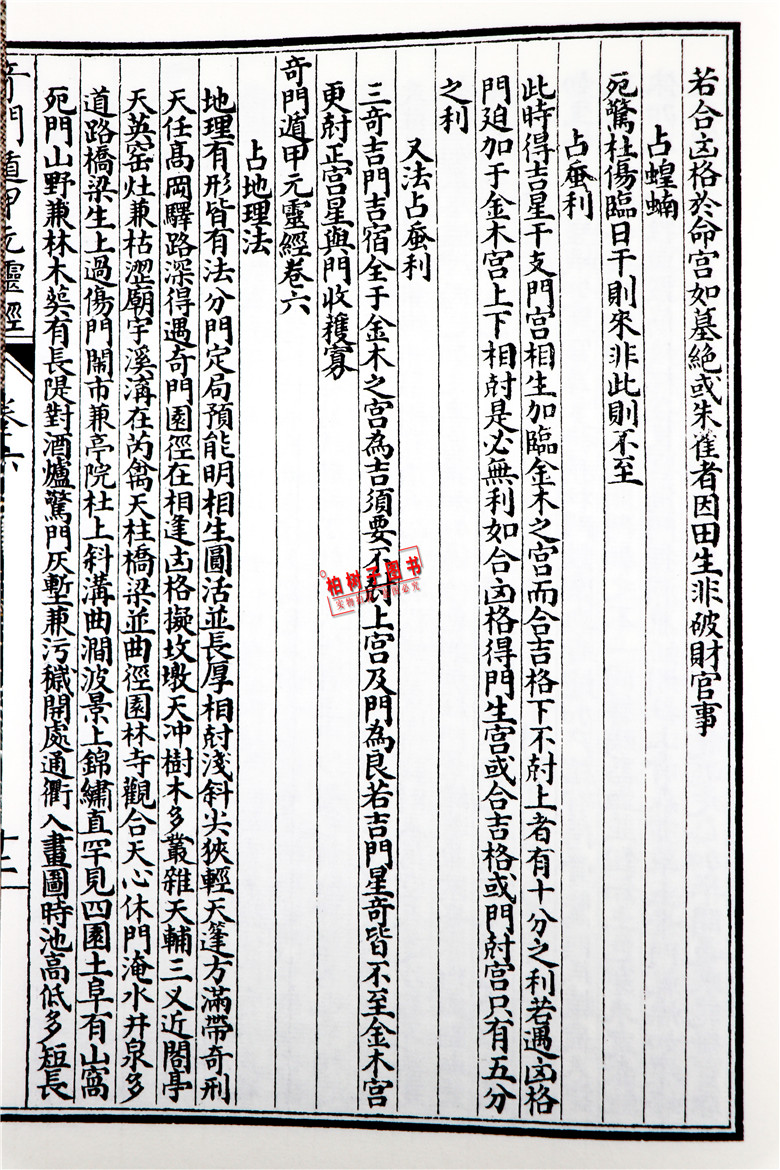 若合凶格於命宮如墓絕或朱雀者因田生非破財官事
占蝗蝻
死驚杜傷臨日干則來非此則不至
占蚕利
此時得吉星干支門宮相生加臨金木之宮而合吉格下不尅上者有十分之利若遇凶格
門廹加于金木宮上下相尅是必無利如合凶格得門生宮或合吉格或門尅宮只有五分
之利
又法占蚕利
三奇吉門吉宿全于金木之宮為吉須要不尅上宮及門為良若吉門星奇皆不至金木宮
更尅正宮星與門收穫寡
奇門遁甲元靈經卷六
占地理法
地理有形皆有法分門定局預能明相生圓活並長厚相尅淺斜尖狹輕天篷方滿帶奇刑
天任髙岡驛路深得遇奇門園徑在相逢凶格擬坟墩天冲樹木多叢雜天輔三叉近閣亭
天英窑灶兼枯澀廟宇溪溝在芮禽天柱橋梁並曲徑園林寺觀合天心休門淹水井泉多
道路橋梁生上過傷門鬧市兼亭院杜上斜溝曲澗波景上錦繡直罕見四園土阜有山窩
死門山野兼林木塟有長隄對酒爐驚門灰塹兼污穢開處通衢入畫圖時池高低多短長
奇門遁甲元靈經
卷六
十二
柏树子图书